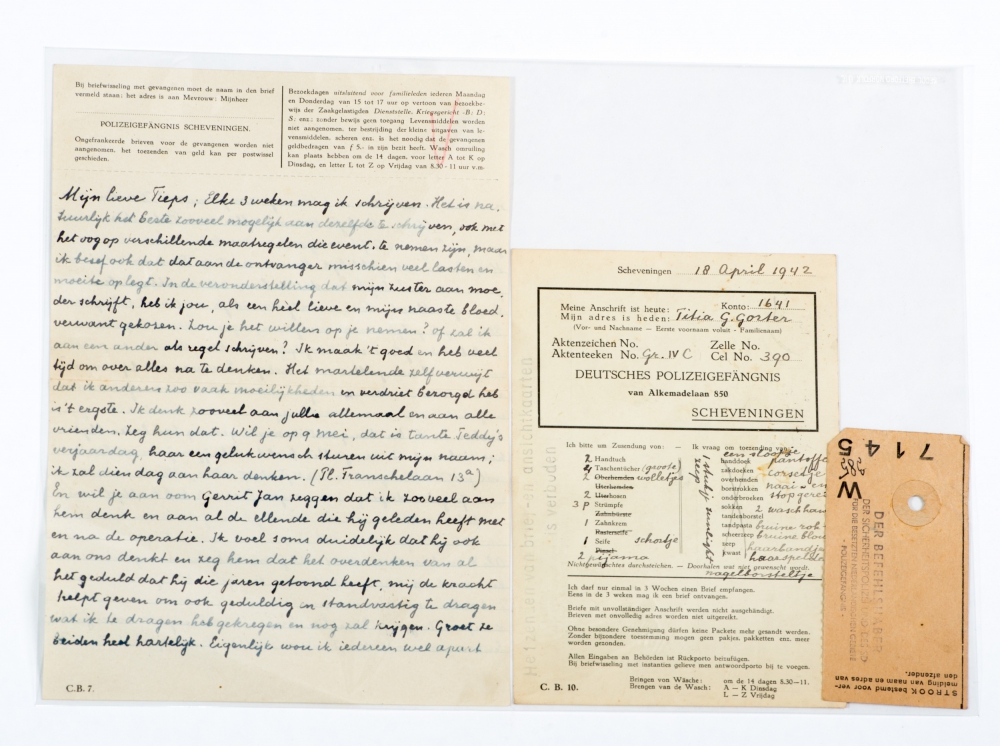 Bij briefwisseling met gevangenen moet de naam in den brief
vermeld staan: het adres is aan Mevrouw: Mijnheer
POLIZEIGEFÄNGNIS SCHEVENINGEN.
Ongefrankeerde brieven voor de gevangenen worden niet
aangenomen, het toezenden van geld kan per postwissel
geschieden.
Bezoekdagen uitsluitend voor familieleden iederen Maandag
en Donderdag van 15 tot 17 uur op vertoon van bezoekbe-
wijs der Zaakgelastigden Dienststelle: Kriegsgericht -B: D:
S: enz.: zonder bewijs geen toegang Levensmiddelen worden
niet aangenomen, ter bestrijding der kleine uitgaven van le-
vensmiddelen, scheren enz. is het noodig dat de gevangenen
geldbedragen van f 5.- in zijn bezit heeft. Wasch omruiling
kan plaats hebben om de 14 dagen, voor letter A tot K op
Dinsdag, en letter L tot Z op Vrijdag van 8.30 - 11 uur v.m.
Mijn lieve Tieps, Elke 3 weken mag ik schrijven. Het is na-
tuurlijk het beste zooveel mogelijk aan dezelfde te schrijven, ook met
het oog op verschillende maatregelen die event. te nemen zijn, maar
ik besef ook dat dat aan de ontvanger misschien veel lasten en
moeite oplegt. In de veronderstelling dat mijn zuster aan moe-
der schrijft, heb ik jou, als een heel lieve en mijn naaste bloed-
verwant gekozen. Zou je het willen op je nemen? of zal ik
aan een ander als regel schrijven? Ik maak 't goed en heb veel
tijd om over alles na te denken. Het martelende zelfverwijt
dat ik anderen zoo vaak moeilijkheden en verdriet bezorgd heb
is 't ergste. Ik denk zooveel aan jullie allemaal en aan alle
vrienden. Zeg hun dat. Wil je op 9 mei, dat is tante Teddy's
verjaardag, haar een gelukwensch sturen uit mijn naam;
ik zal dien dag aan haar denken. (Pl. Franschelaan 13a)
En wil je aan oom Gerrit Jan zeggen dat ik zooveel aan
hem denk en aan al de ellende die hij geleden heeft met
en na de operatie. Ik voel soms duidelijk dat hij ook
aan ons denkt en zeg hem dat het overdenken van al
het geduld dat hij die jaren getoond heeft, mij de kracht
helpt geven om ook geduldig en standvastig te dragen
wat ik te dragen heb gekregen en nog zal krijgen. Groet ze
beiden heel hartelijk. Eigenlijk wou ik iedereen wel apart
C.B. 7.
Scheveningen 18 April 1942
Konto: 1641
Meine Anschrift ist heute:
Mijn adres is heden: Titia G. Gorter
(Vor- und Nachname — Eerste voornaam voluit - Familienaam)
Aktenzeichen No. Zelle No.
Aktenteeken No. Gr. IV C Cel No. 390
DEUTSCHES POLIZEIGEFÄNGNIS
van Alkemadelaan 850
SCHEVENINGEN
Ich bitte um Zusendung von: — Ik vraag om toezending van:
2 Handtuch
4 Taschentücher (groote)
2 Oberhemden wolletjes
2 Unterhosen
3 p Strümpfe
Zahnbürste
1 Zahnkrem
Rasierseife
1 Seife schortje
Pinsel
2 pijama
1 stukje sunlight zeep
handdoek
zakdoeken
overhemden
borstrokken
onderbroeken
sokken
tandenborstel
tandpasta
scheerzeep
zeep
kwast
een sloopje
pantoffe
corsetje
naai- en
stopgere
2 waschhan
bruine rok
bruine blou
haarbandje
haarspelden
nagelborsteltje
Nichtgewünschtes durchstreichen. — Doorhalen wat niet gewenscht wordt.
Ich darf nur einmal in 3 Wochen einen Brief empfangen.
Eens in de 3 weken mag ik een brief ontvangen.
Briefe mit unvollständiger Anschrift werden nicht ausgehändigt.
Brieven met onvolledig adres worden niet uitgereikt.
Ohne besondere Genehmigung dürfen keine Packete mehr gesandt werden.
Zonder bijzondere toestemming mogen geen pakjes, pakketten enz. meer
worden gezonden.
Allen Eingaben an Behörden ist Rückporto beizufügen.
Bij briefwisseling met instanties gelieve men antwoordporto bij te voegen.
Bringen von Wäsche: om de 14 dagen 8.30—11.
Brengen van de Wasch: A — K Dinsdag
L — Z Vrijdag
C. B. 10.
brief- en ansichtkaarten
is verboden
7145
W
DER BEFEHLSHABER
DER SICHERHEITSPOLIZEI
STROOK bestemd voor ver-
melding van naam en adres van
den afzender.